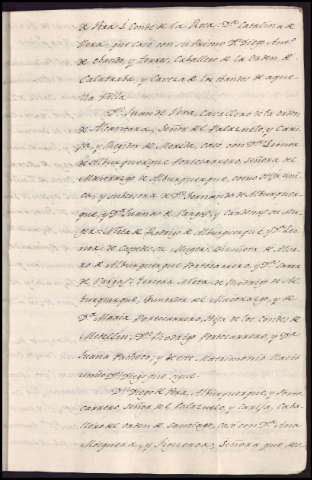 de Vera I. Conde de la Roca. Dª Catalina de
Vera, que casó con su Primo Dn Diego Anto
de obando, y torres, Caballero de la orden de
Calatraba, y Cavera de los obandos de aque
lla Villa.
Dn Juan de Vera, Cavallero de la orden
de Alcantara, Señor del Palazuelo, y Cari
ja, y Regidor de Merida, casó con Dª Leonor
de Alburquerque Portocarrero Señora del
Maiorazgo de Alburquerque, como Hija uni
ca, y subcesora de Dn Fernando de Alburquer
que, y Dª Juana de Vargas, y Cardenas su Mu
ger: Nieta de Rodrigo de Alburquerque, y Dª Leo
nor de su Muger: Viznieta de
de Alburquerque Portocarrero, y Dª
de Vargas: tercera Nieta de Rodrigo de Al
burquerque, fundador del Maiorazgo, y de
Dª Maria Portocarrero, Hija de los Condes de
Medellin, Dn Rodrigo Portocarrero, y Dª
Juana Pacheco; y de este Matrimonio Nació
Dn Diego que sigue
Dn Diego de Vera, Alburquerque, y Porto
carrero Señor del Palazuelo, y Carija, Caba
llero del orden de Santiago, casó con Dª Ana
Mosquera, y Figueroa, Señora que